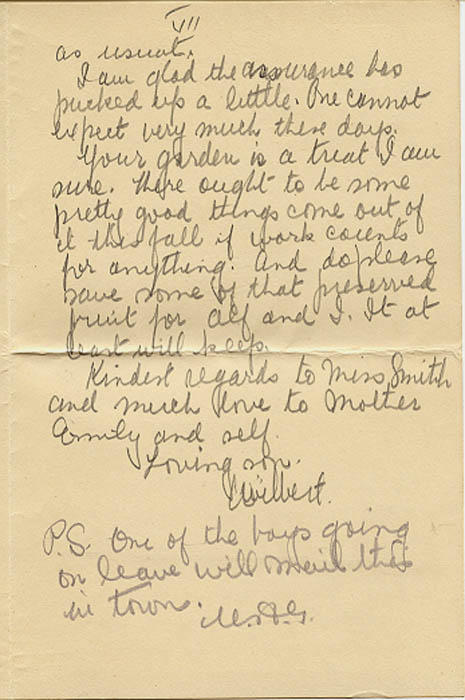 VII
as usual.
I am glad the assurance has
picked up a little. One cannot
expect very much these days.
Your garden is a treat I am
sure. There ought to be some
pretty good things come out of
it this fall if work counts
for anything. And do please
save some of that preserved
fruit for Alf and I. It at
least will keep.
Kindest regards to Miss Smith
and much love to Mother
Emily and self.
Loving son.
Wilbert.
P.S. One of the boys going
on leave will mail this
in town.